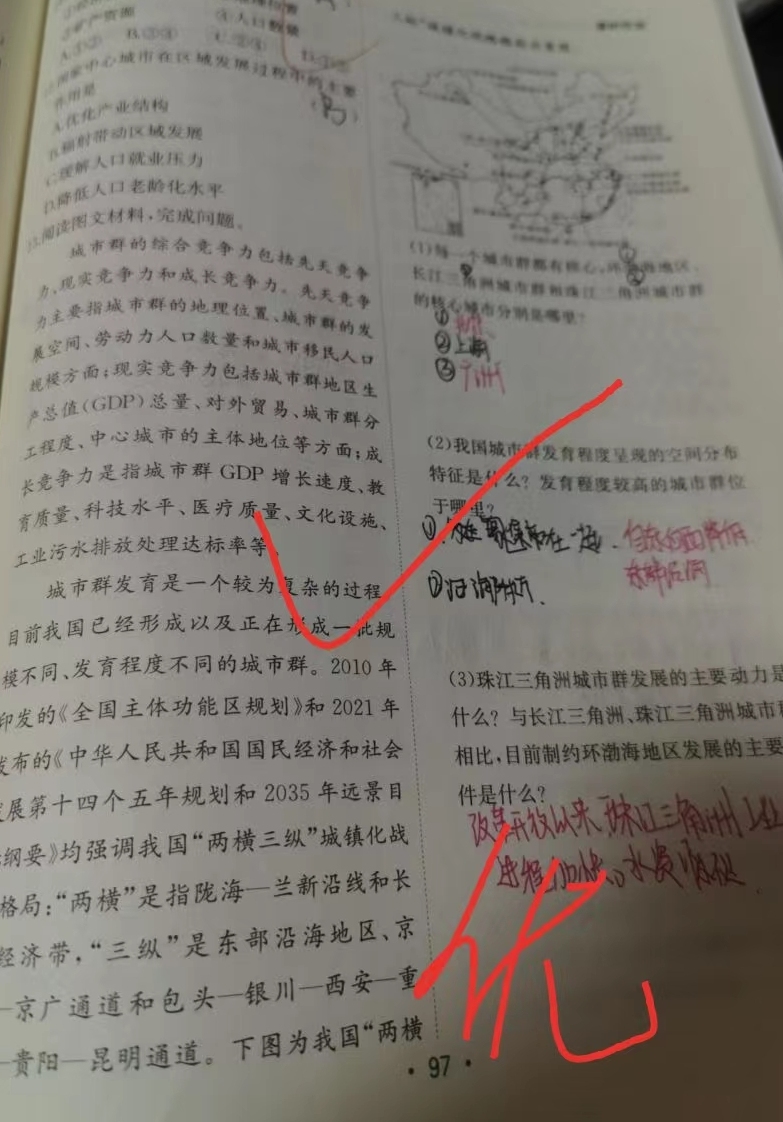 ②矿产资源 ④人口数量
A.①② B.②③ C.②④ D.①③
国家中心城市在区域发展过程中的主要
作用是
B
A.优化产业结构
B.辐射带动区域发展
C.缓解人口就业压力
D.降低人口老龄化水平
阅读图文材料,完成问题。
城市群的综合竞争力包括先天竞争
力、现实竞争力和成长竞争力。先天竞争
力主要指城市群的地理位置、城市群的发
展空间、劳动力人口数量和城市移民人口
规模方面;现实竞争力包括城市群地区生
产总值(GDP)总量、对外贸易、城市群分
工程度、中心城市的主体地位等方面;成
长竞争力是指城市群 GDP 增长速度、教
育质量、科技水平、医疗质量、文化设施、
工业污水排放处理达标率等。
城市群发育是一个较为复杂的过程
目前我国已经形成以及正在形成一批规
模不同、发育程度不同的城市群。2010 年
印发的《全国主体功能区规划》和 2021 年
发布的《中华人民共和国国民经济和社会
发展第十四个五年规划和 2035 年远景目
纲要》均强调我国“两横三纵”城镇化战
格局:“两横”是指陇海—兰新沿线和长
经济带,“三纵”是东部沿海地区、京
—京广通道和包头—银川—西安—重
—贵阳—昆明通道。下图为我国“两横
(1)每一个城市群都有核心,环渤海地区、
长江三角洲城市群和珠江三角洲城市群
的核心城市分别是哪里?
①
②上海
③广州
(2)我国城市群发育程度呈现的空间分布
特征是什么?发育程度较高的城市群位
于哪里?
①
②沿海
(3)珠江三角洲城市群发展的主要动力是
什么?与长江三角洲、珠江三角洲城市群
相比,目前制约环渤海地区发展的主要
件是什么?
改革开放以来,珠江三角洲工业
化
进程加快。水资源短缺
· 97 ·